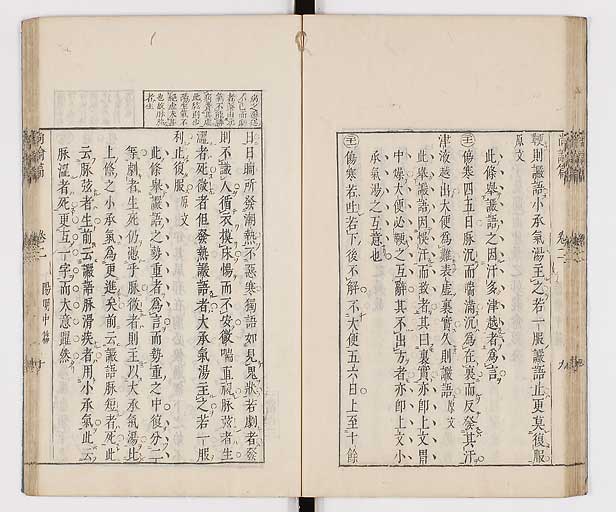 鞕則讝語小承氣湯主之若一服讝語止更莫復服
原文
此條舉讝語之因汗多津越者為言
傷寒四五日脉沉而喘滿沉為在裏而反發其汗
津液越出大便為難表虛裏實久則讝語 原文
此舉讝語因悞汗而致者其曰裏實亦即上文胃
中燥大便必鞕之互辭其不出方者亦即上文小
承氣湯之互意也
傷寒若吐若下後不解不大便五六日上至十餘
日日晡所發潮熱不惡寒獨語如見鬼狀若劇者發
則不識人循衣摸床惕而不安微喘直視脉弦者生
濇者死微者但發熱讝語者大承氣湯主之若一服
利止後服 原文
此條舉讝語之勢重者為言而勢重之中復分二
等劇者生死仍憑乎脉微者則主以大承氣湯比
上條之小承氣為更進矣前云讝語脉短者死此
云脉弦者生前云讝語脉滑疾者用小承氣此云
脉濇者死更互一字而大意躍然
卷二
陽明中篇